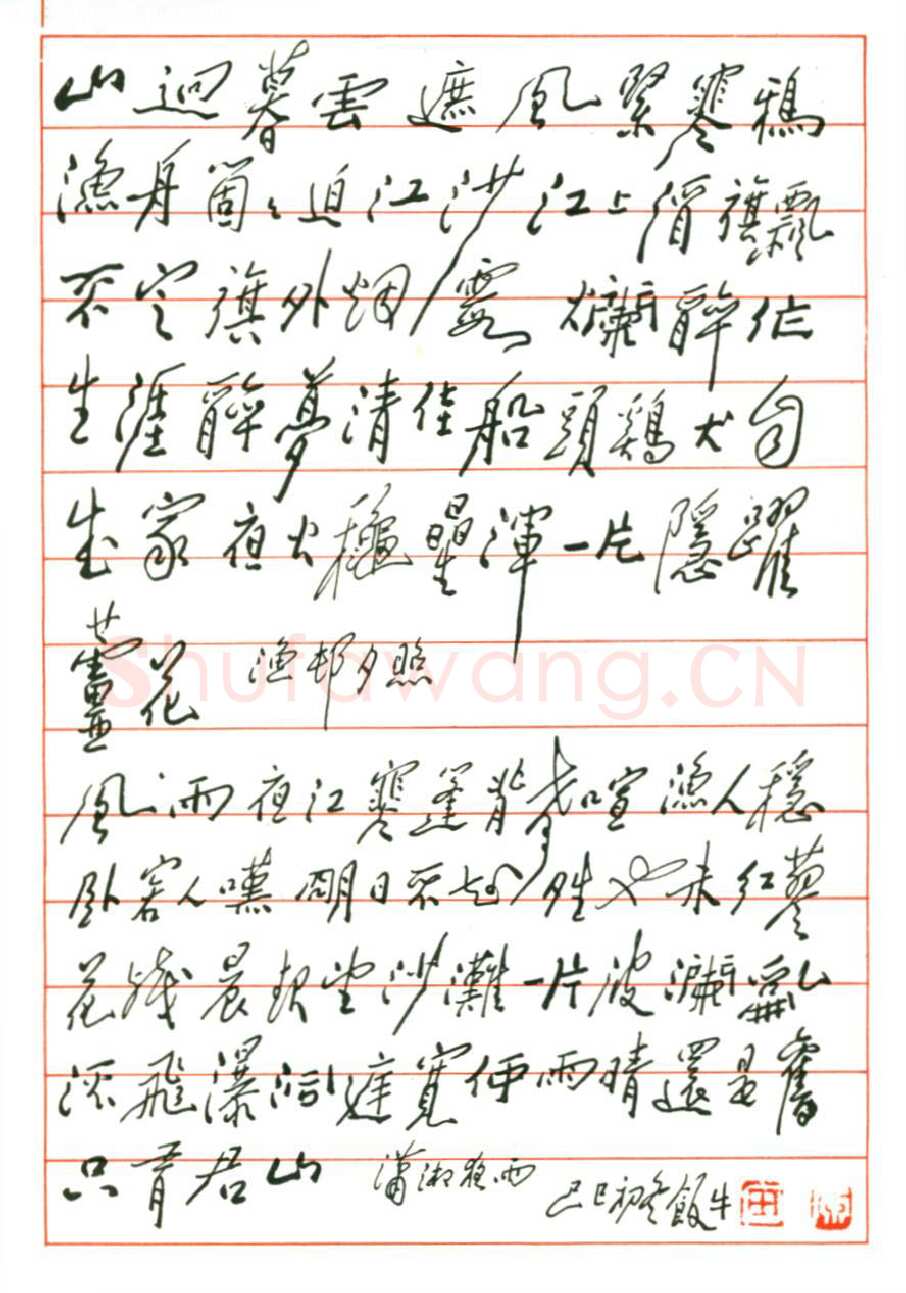 山迥暮雲遮風緊寒鴉
漁舟箇〻迫江沙江上酒旗飄
不定旗外烟霞爛醉作
生涯醉夢清佳船頭鷄犬自
成家夜火穐星渾一片隱躍
蘆花 漁邨夕照
風雨夜江寒篷背聲喧漁人穩
臥客人嘆明日不知晴也未紅蓼
花殘晨起望沙灘一片波瀾亂
流飛瀑洞庭寬便雨晴還是舊
只有君山 瀟湘夜雨
己巳初冬飯牛
Shufawang.CN